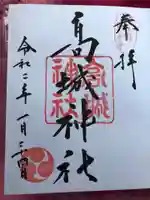 奉拝
高城神社
高城神社
令和二年一月二十四日